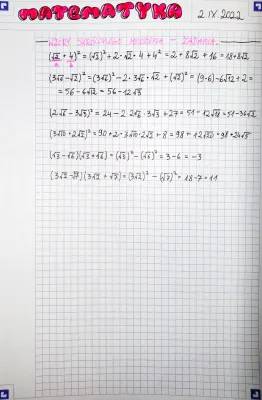 MATEMATYKA 2 IX 2022
WZORY SKRÓCONEGO MNOŻENIA - ZADANIA.
(√2 + 4)² = (√2)² + 2·√2·4 + 4² = 2 + 8√2 + 16 = 18+8√2
(3√6 - √2)² = (3√6)² - 2·3√6·√2 + (√2)² = (9·6) - 6√12 + 2 =
= 56 - 6√12 = 56 - 12√3
(2√6 - 3√3)² = 24 - 2·2√6·3√3 + 27 = 51 - 12√18 = 51 - 36√2
(3√10 + 2√2)² = 90 + 2·3√10·2√2 + 8 = 98 + 12√20 = 98 + 24√5
(√3 - √6)(√3 + √6) = (√3)² - (√6)² = 3 - 6 = -3
(3√2 - √7)(3√2 + √7) = (3√2)² - (√7)² = 18 - 7 = 11